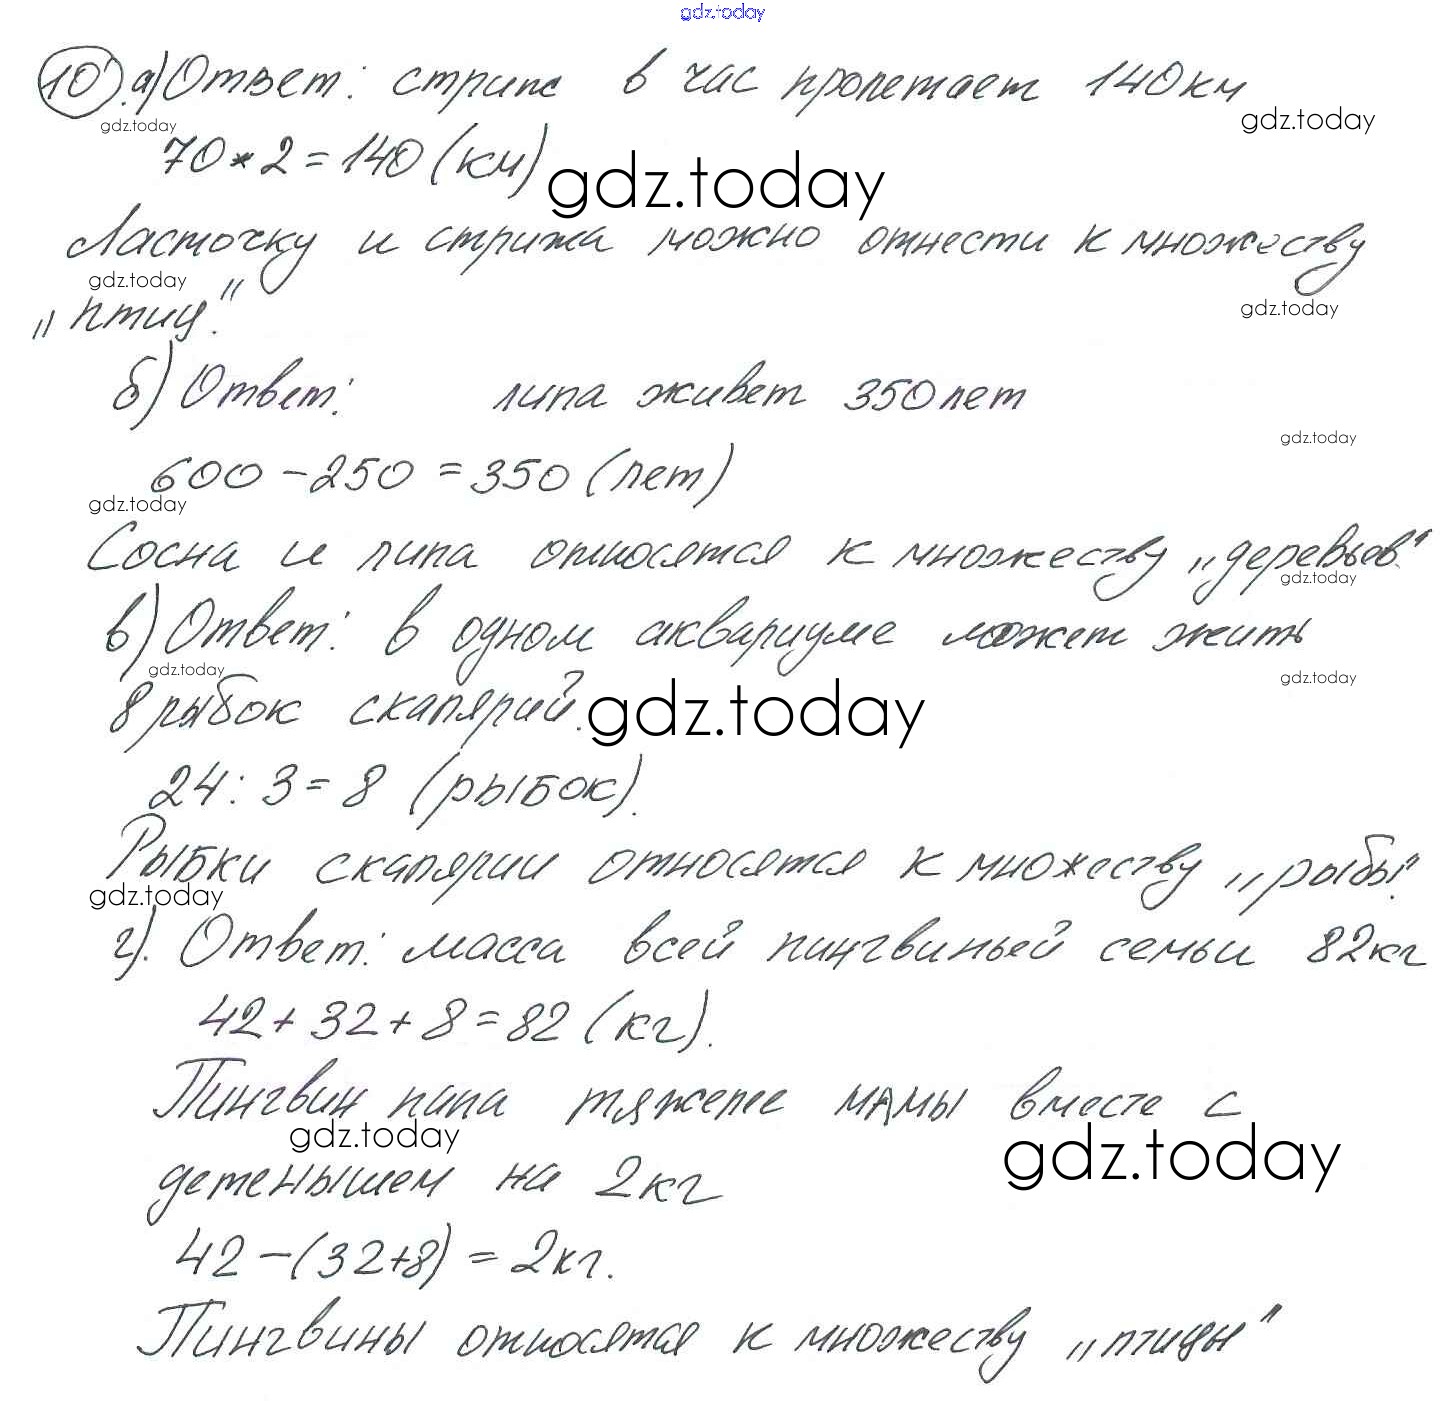 gdz.today
10. а) Ответ: стриж в час пролетает 140 км
gdz.today gdz.today
70 * 2 = 140 (км)
gdz.today
Ласточку и стрижа можно отнести к множеству
gdz.today
„птиц."
gdz.today
б) Ответ: липа живет 350 лет
gdz.today
600 - 250 = 350 (лет)
gdz.today
Сосна и липа относятся к множеству „деревьев."
gdz.today
в) Ответ: в одном аквариуме может жить
gdz.today gdz.today
8 рыбок скалярий.
gdz.today
24 : 3 = 8 (рыбок).
Рыбки скалярии относятся к множеству „рыбы."
gdz.today
г). Ответ: масса всей пингвиньей семьи 82 кг
42 + 32 + 8 = 82 (кг).
Пингвин папа тяжелее мамы вместе с
gdz.today gdz.today
детенышем на 2 кг
42 - (32+8) = 2 кг.
Пингвины относятся к множеству „птицы"